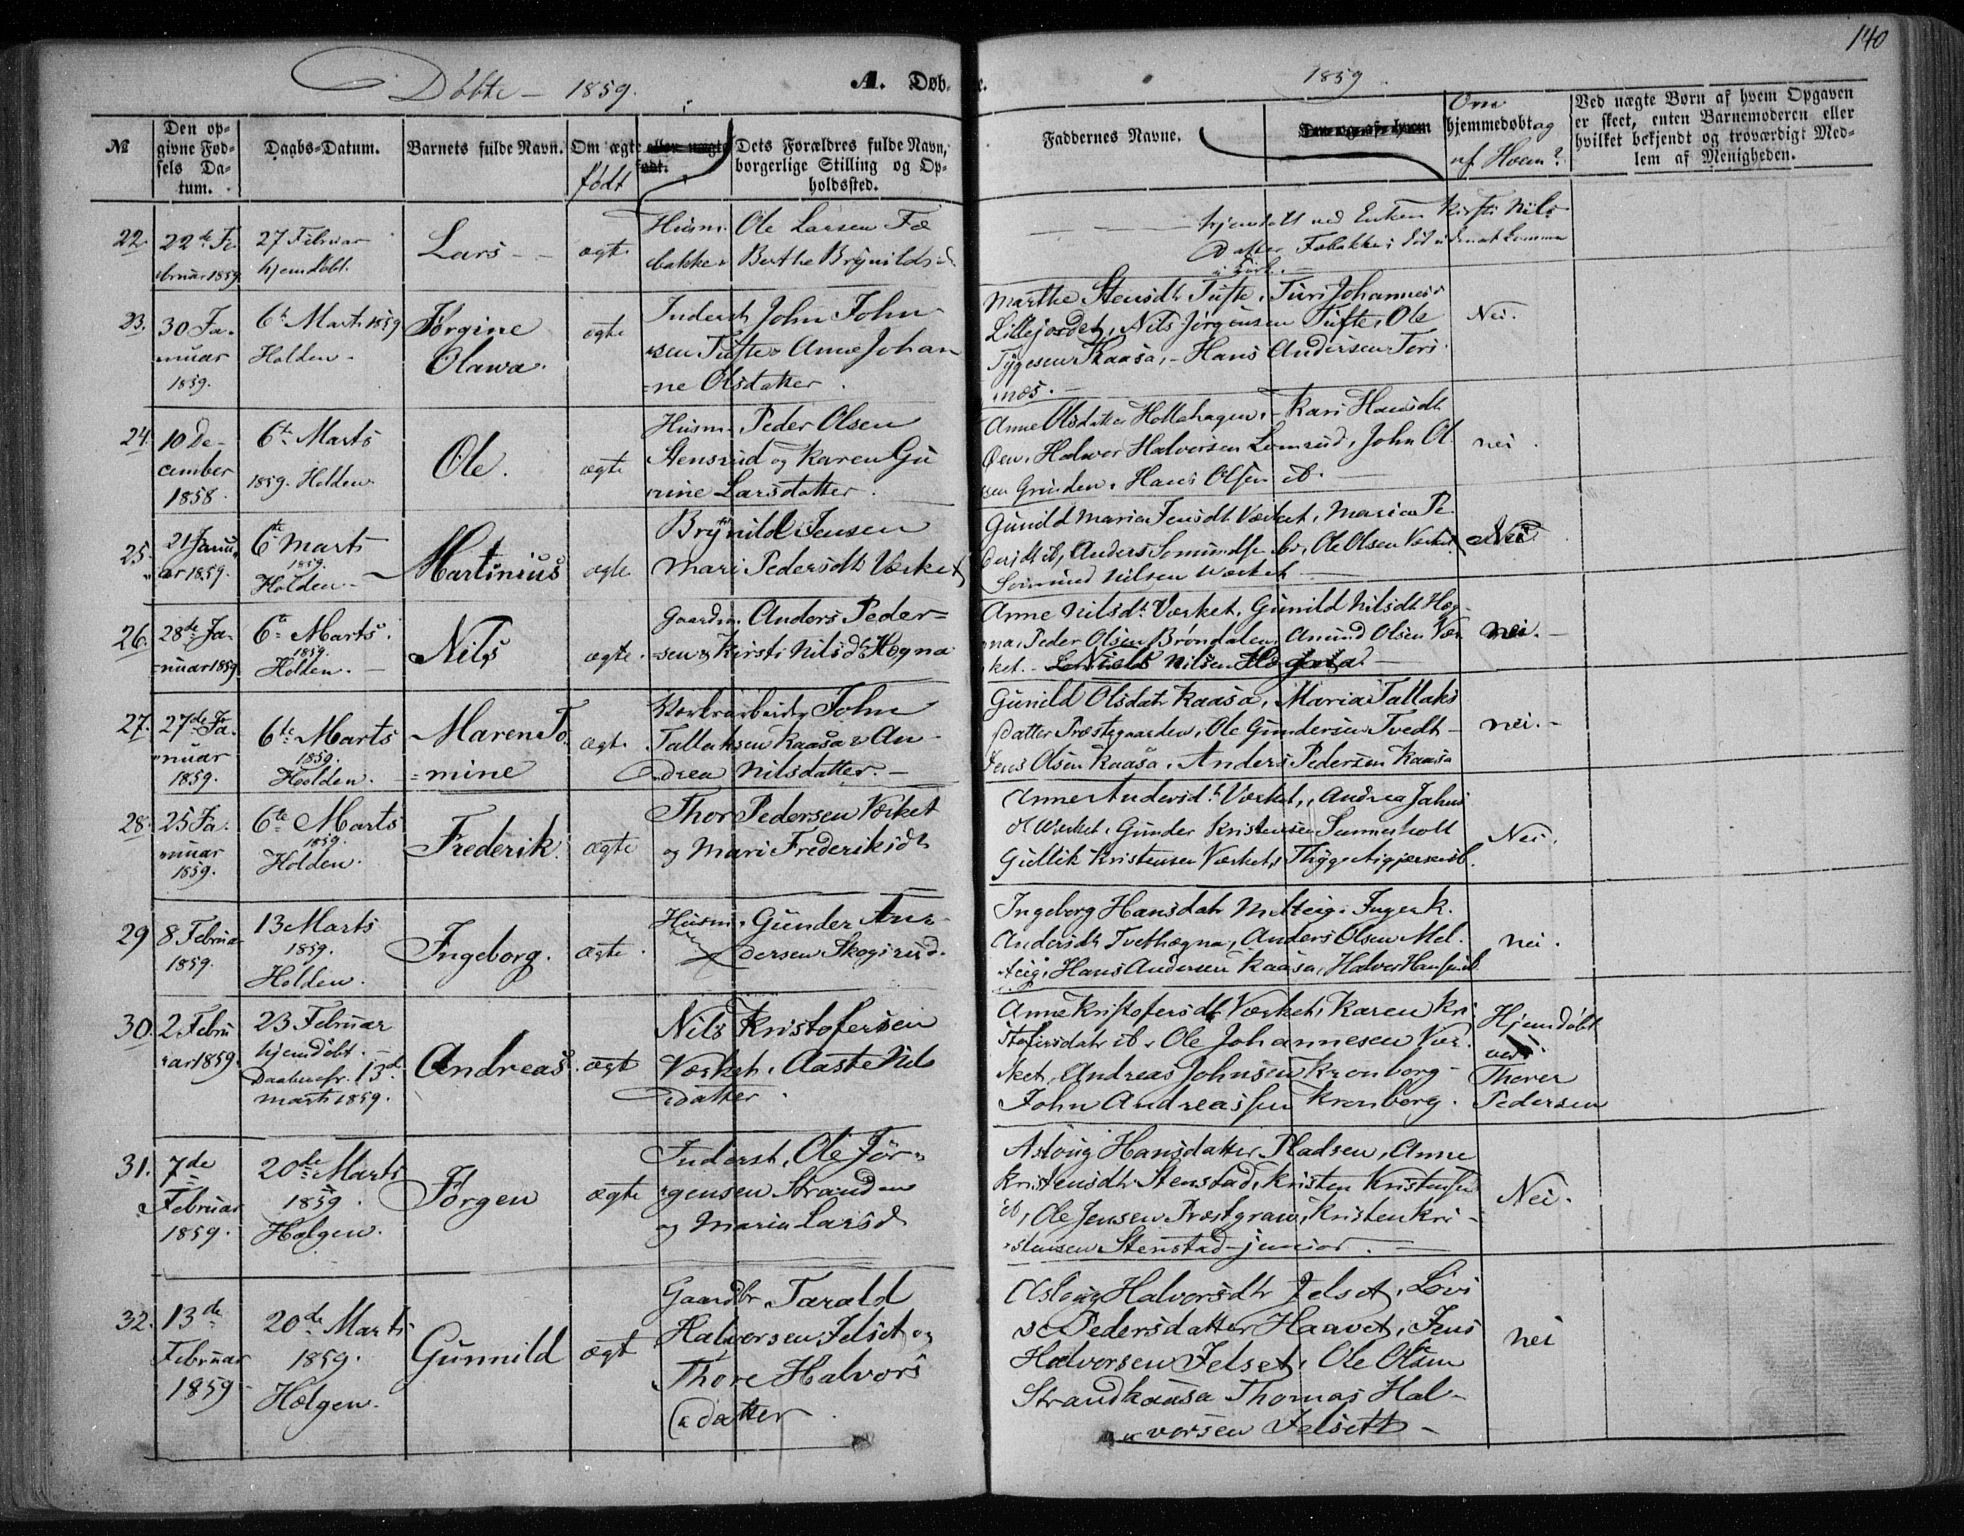 140
Døbte - 1859.
A. Døb-
e.
1859
№
Den op-
givne Fød-
sels Da-
tum.
Daabs-Datum.
Barnets fulde Navn.
Om ægte eller uægte
født
født.
Dets Forældres fulde Navn,
borgerlige Stilling og Op-
holdssted.
Faddernes Navne.
Om
hjemmedøbt og
af Hvem?
Ved uægte Børn af hvem Opgaven
er skeet, enten Barnemoderen eller
hvilket bekjendt og troværdigt Med-
lem af Menigheden.
22.
22de Fe
bruar 1859
27 Februar
hjemdøbt.
Lars
ægte
Husm. Ole Larsen Fæ
bakke Berthe Brynilds
hjemdøbt ved Enken Kirsti Nils
Datter
23.
30 Ja-
nuar
1859.
6te Marts 1859
Holden
Jørgine
Olawa.
ægte
Inderst John John-
sen Tufte Anne Johan
ne Olsdatter.
Marthe Stensdtr Tufte, Turi Johannes
Lillejordet, Nils Jørgensen Tufte, Ole
Tygesen Kaasa, Hans Andersen Teri
næs.
Nei.
24.
10 De-
cember
1858.
6te Marts
1859. Holden
Ole.
ægte
Husm. Peder Olsen
Stensrud og Karen Gu
nine Larsdatter.
Anne Olsdatter Holtehagen, Kari Hansdtr
Halvor Halvorsen Lomrud, John Ol
sen Grinden, Hans Olsen ib.
nei
25.
21 Janu
ar 1859.
6te Marts
1859.
Holden
Martinius
ægte
Brynild Jensen
Mari Pedersdtr Værket
Gunild Maria Jensdtr Værket, Maria Pe
dersdtr ib, Anders Somundsen ib, Ole Olsen Værket
Somund Nilsen Værket
Nei
26.
28de Ja-
nuar 1859
6te Marts.
1859.
Holden.
Nils
ægte.
Gaardm. Anders Peder-
sen & Kirsti Nilsd Høgna
Anne Nilsdt. Værket, Gunild Nilsdtr Høg
na, Peder Olsen Brøndalen, Amund Olsen Vær
ket. Nilsen
nei.
27.
27de Ja-
nuar
1859.
6te Marts
1859.
Holden.
Maren To
mine
ægt.
Værksarbeider John
Tallaksen Kaasa & An-
drea Nilsdatter.
Gunild Olsdatr Kaasa, Maria Tallaks
datter Præstegaarden, Ole Gundersen Tvedt
Jens Olsen Kaasa, Anders Pedersen Kaasa
nei.
28.
25 Ja-
nuar
1859.
6te Marts
1859.
Holden.
Frederik.
ægte
Thor Pedersen Værket
og Mari Frederiksdtr
Anne Andersdtr Værket, Andrea
Værket, Gunder Kristensen
Gullik Kristensen Værket, Thyge
Nei.
29
8 Februar
1859.
13 Marts
1859.
Holden.
Ingeborg.
ægte.
Husm. Gunder An-
dersen Skogsrud.
Ingeborg Hansdatr Melteig, Inger K.
Andersdtr Tvethøgna, Anders Olsen Mel-
teig, Hans Andersen Kaasa, Halvor Hansen ib
nei.
30.
2 Febru
ar 1859.
23 Februar
hjemdøbt.
13de
Marts 1859.
Andreas
ægt
Nils Kristofersen
Værket, Aaste Nils
datter.
Anne Kristofersdtr Værket, Karen Kri
stofersdatr ib, Ole Johannesen Vær
ket, Andreas Johnsen Kronborg
John Andreassen Kronborg.
Hjemdøbt
ved
Thorer
Pedersen
31.
7de
Februar
1859.
20de Marts
1859.
Helgen.
Jørgen
ægte
Inderst, Ole Jør-
gensen Stranden
og Maria Larsd
Aslaug Hansdatter Pladsen, Anne
Kristensdtr Stenstad, Kristen Kristensen
ib, Ole Jensen Præstgrav, Kristen Kri-
stensen Stenstad junior.
Nei.
32.
13de
Februar
1859
20de Marts
1859.
Helgen.
Gunnild
ægt
Gaardbr. Tarald
Halvorsen Jelset og
Thore Halvors
datter
Aslaug Halvorsdtr Jelset, Lovi
se Pedersdatter Haavet, Jens
Halvorsen Jelset, Ole Olsen
Strandkaasa Thomas Hal-
vorsen Jelsett
nei